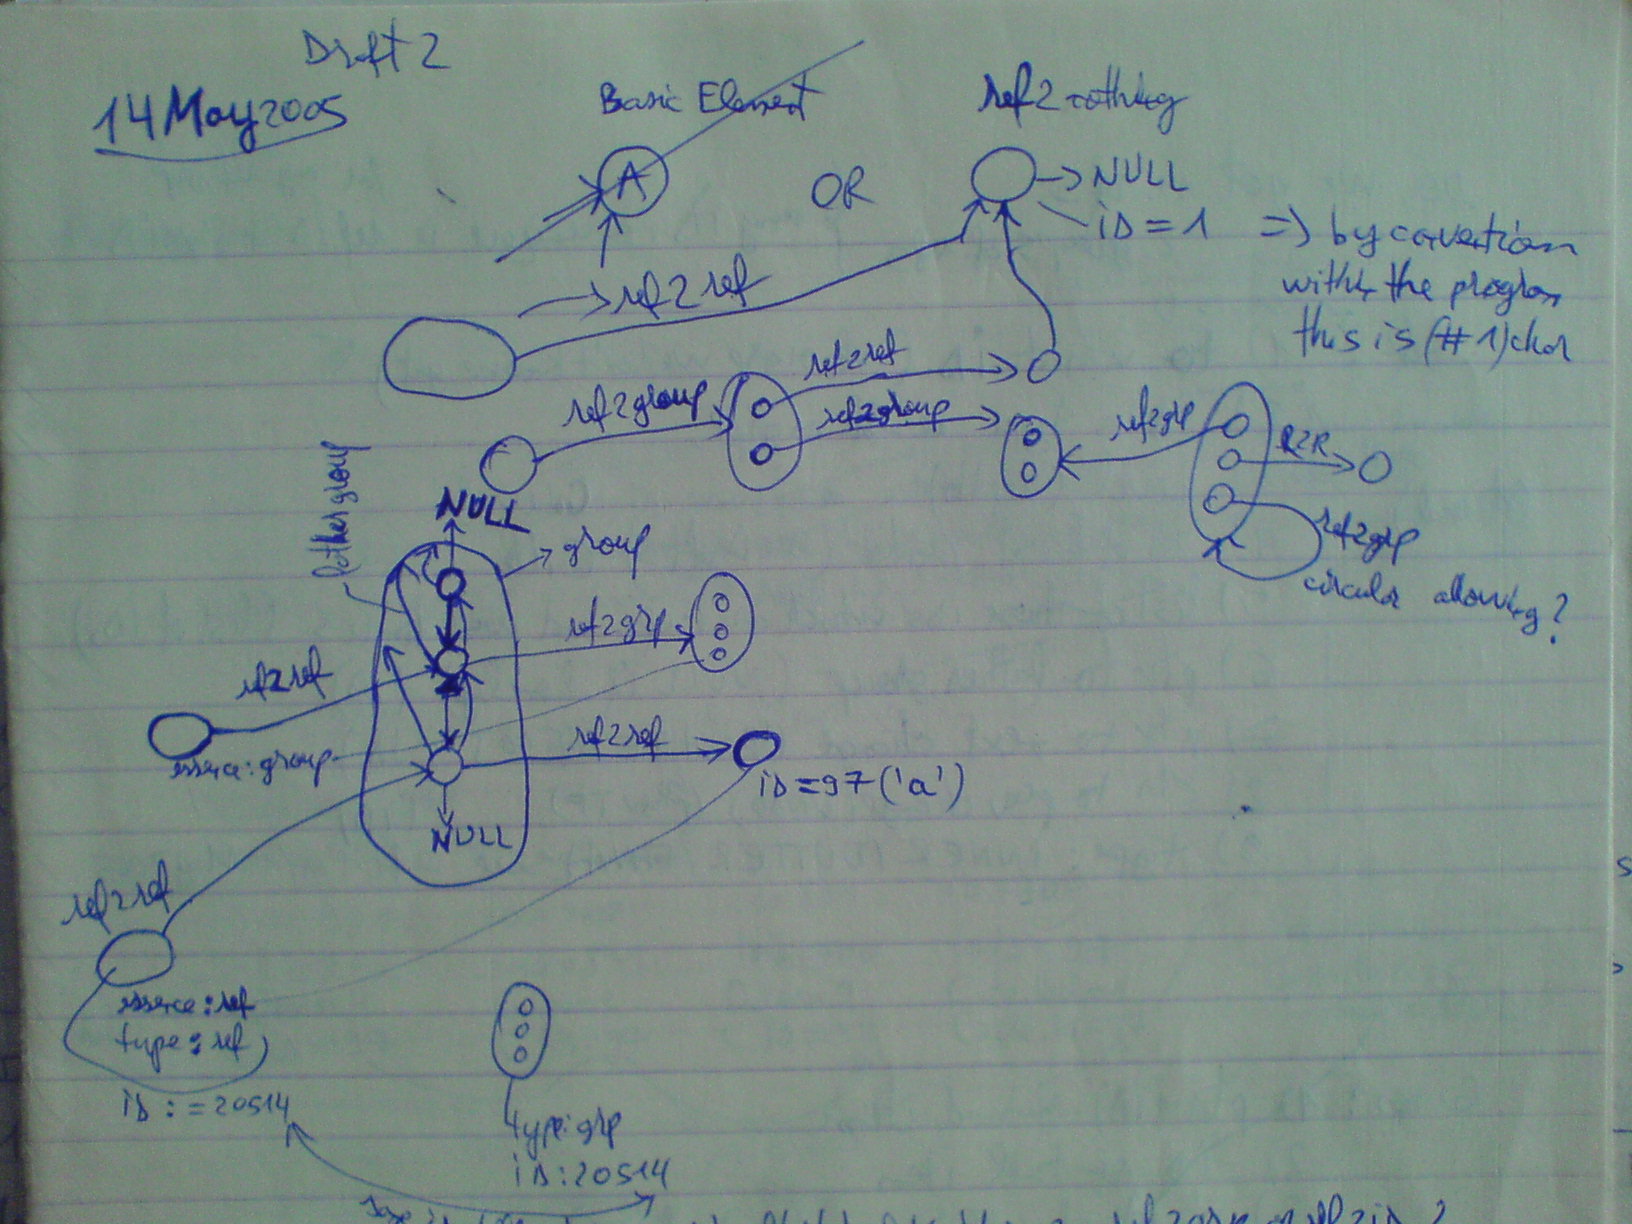 Draft 2
14 May 2005
Basic Element
ref2nothing
A
OR
NULL
ID = 1 => by convention
within the program
this is (#1) char
ref2ref
ref2ref
ref2group
ref2group
ref2grp
R2R
ref2grp
circular allowing?
NULL
father group
group
ref2grp
ref2ref
essence: group
ref2ref
ID = 97 ('a')
NULL
ref2ref
essence: ref
type: ref
ID := 20514
type: grp
ID: 20514